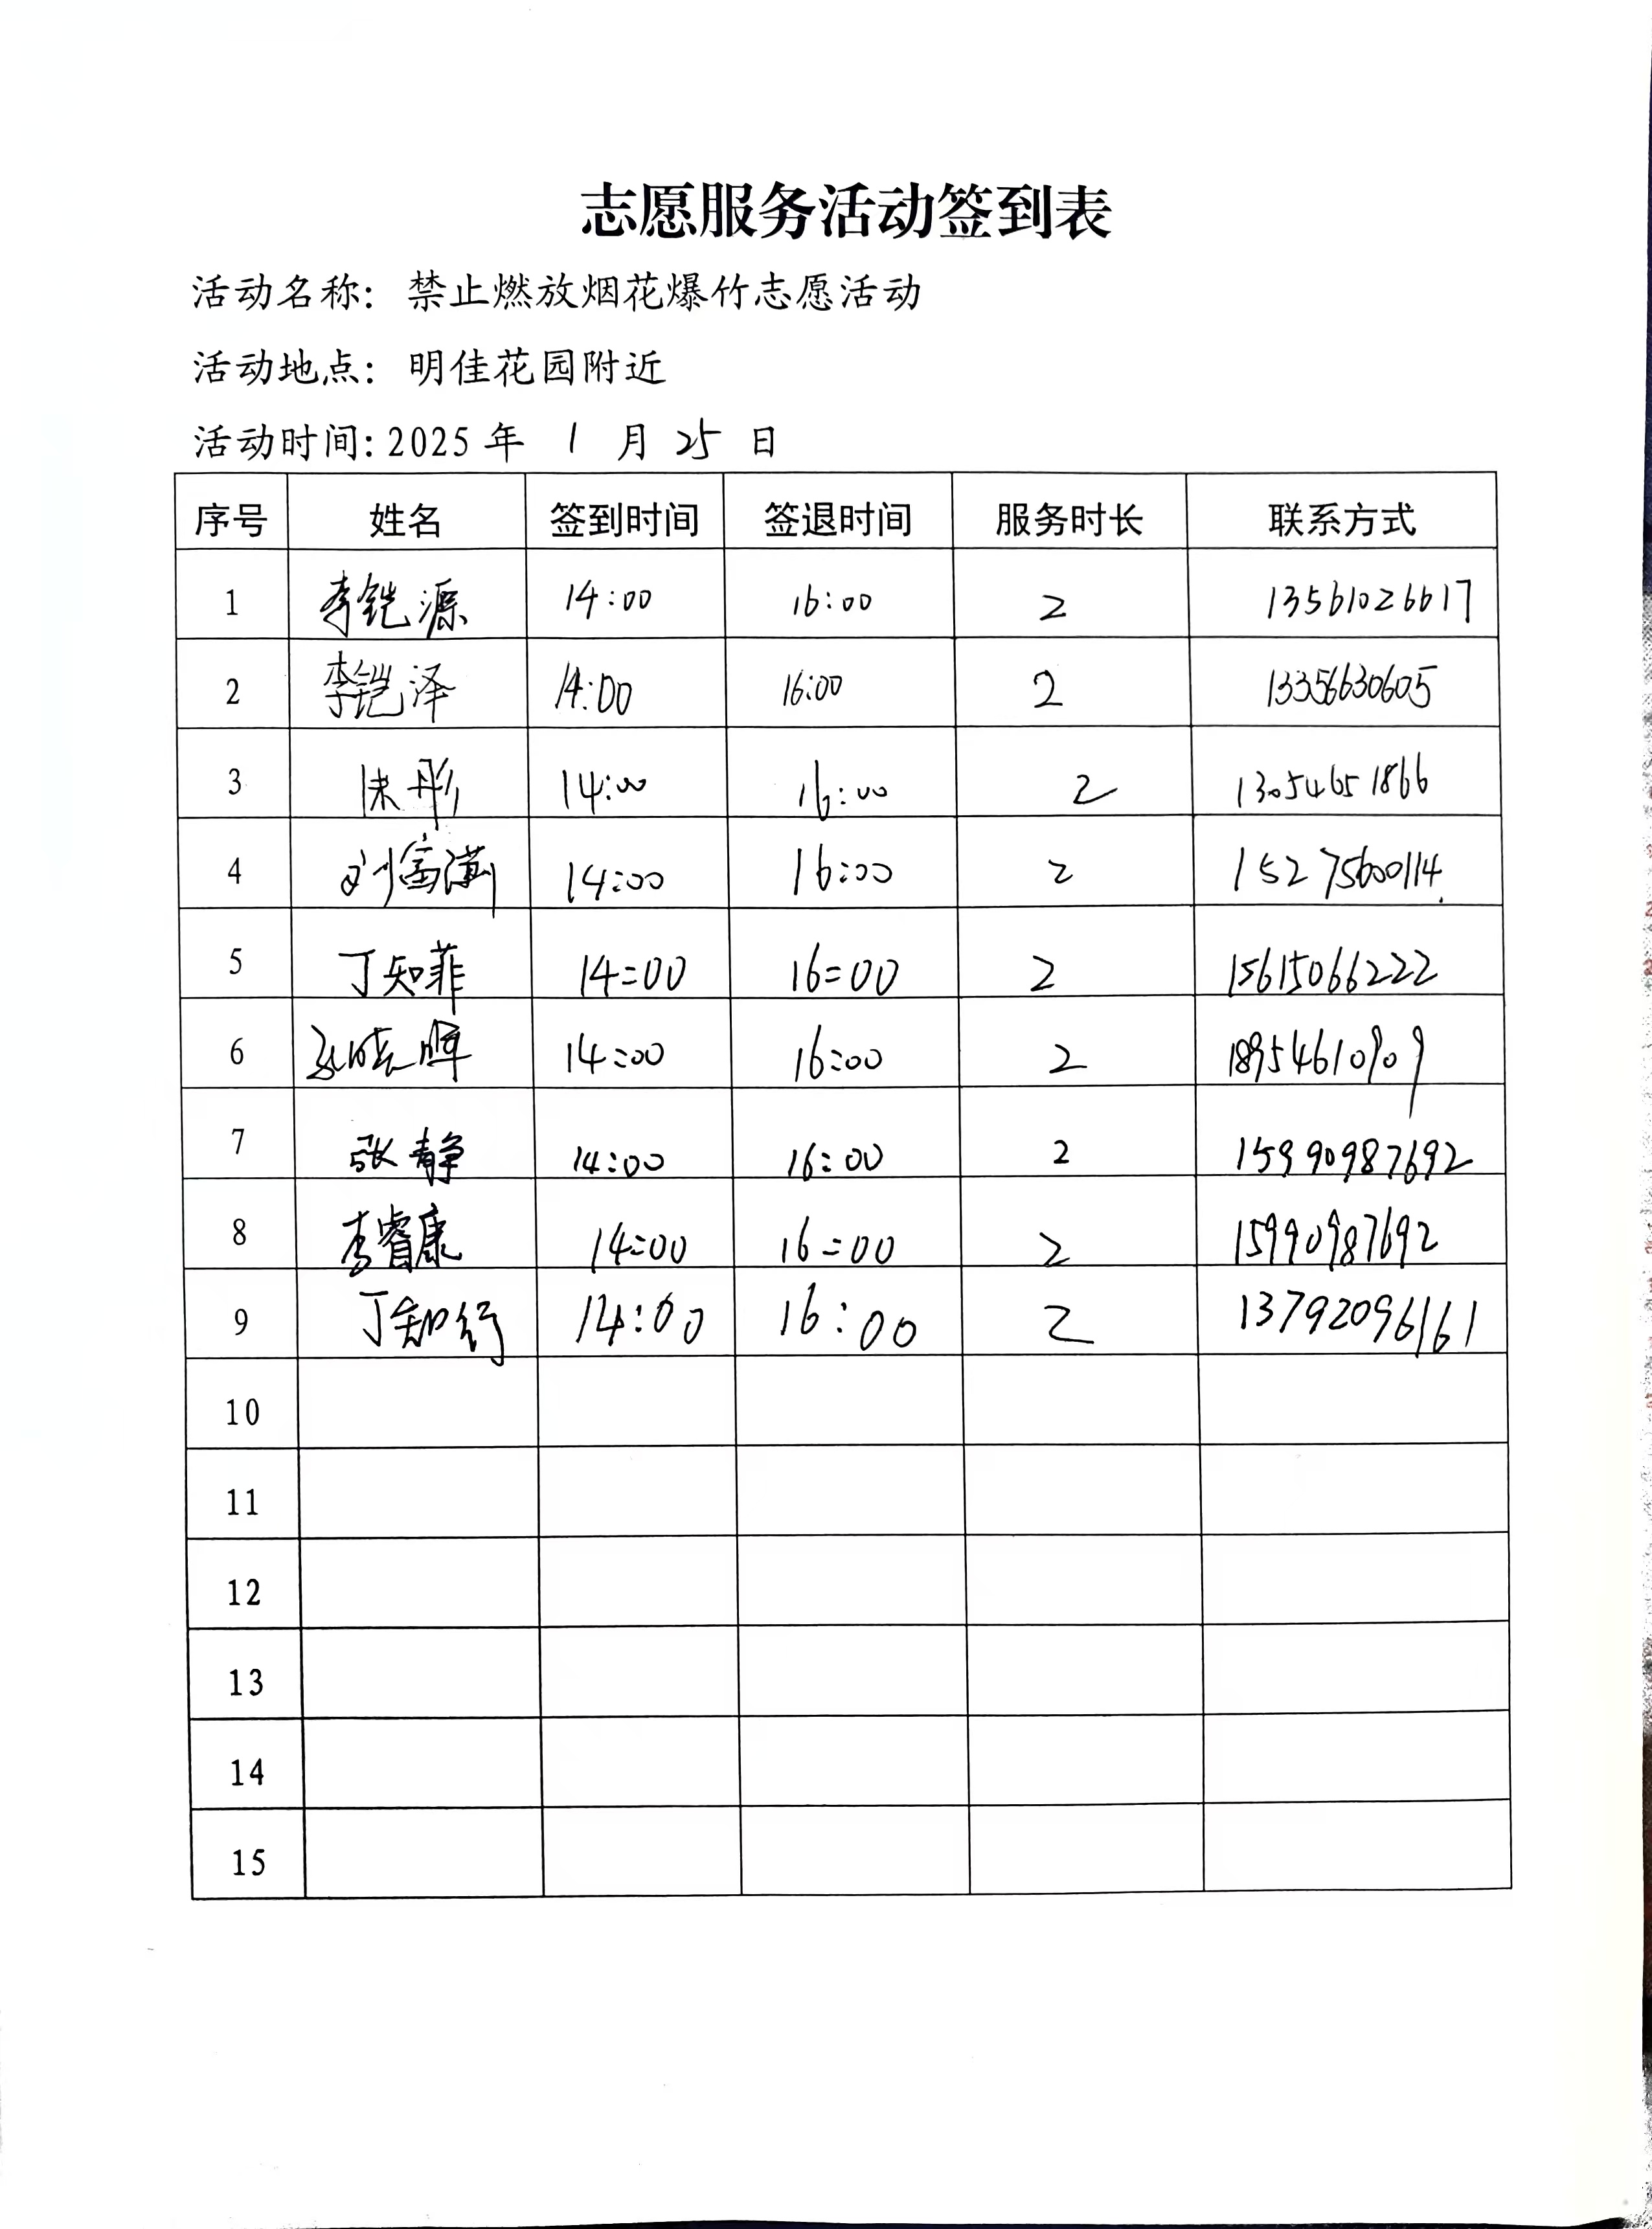 志愿服务活动签到表
活动名称：禁止燃放烟花爆竹志愿活动
活动地点：明佳花园附近
活动时间：2025 年 1 月 25 日
序号 姓名 签到时间 签退时间 服务时长 联系方式
1 李铠源 14:00 16:00 2 13561026617
2 李铠泽 14:00 16:00 2 13356630605
3 14:00 16:00 2 13054651866
4 刘富满 14:00 16:00 2 15275600114
5 丁知菲 14:00 16:00 2 15615066222
6 14:00 16:00 2 18954610909
7 张静 14:00 16:00 2 15990987692
8 李睿康 14:00 16:00 2 15990987692
9 丁知行 14:00 16:00 2 13792096161
10
11
12
13
14
15